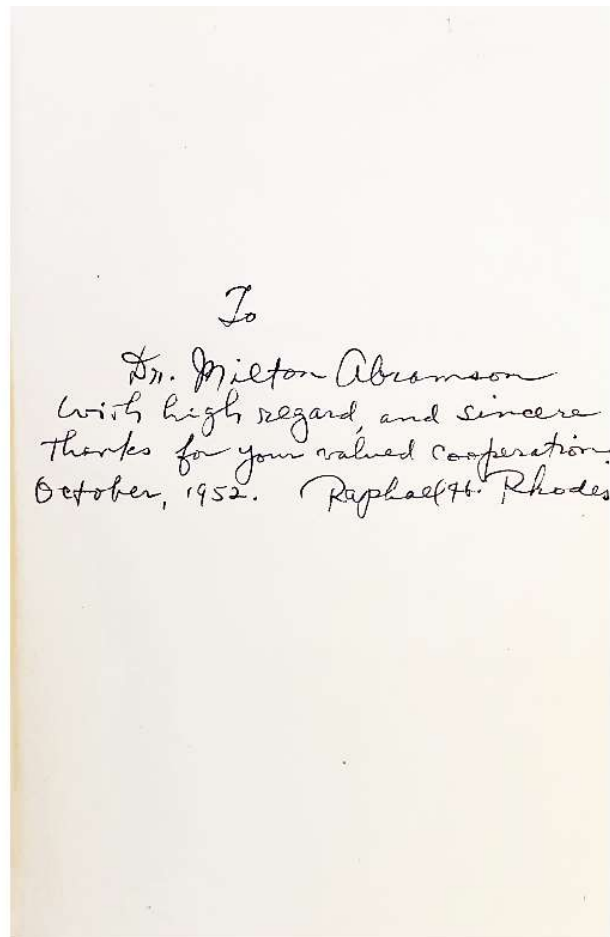 To
Dr. Milton Abramson
with high regard, and sincere
thanks for your valued cooperation.
October, 1952. Raphael H. Rhodes